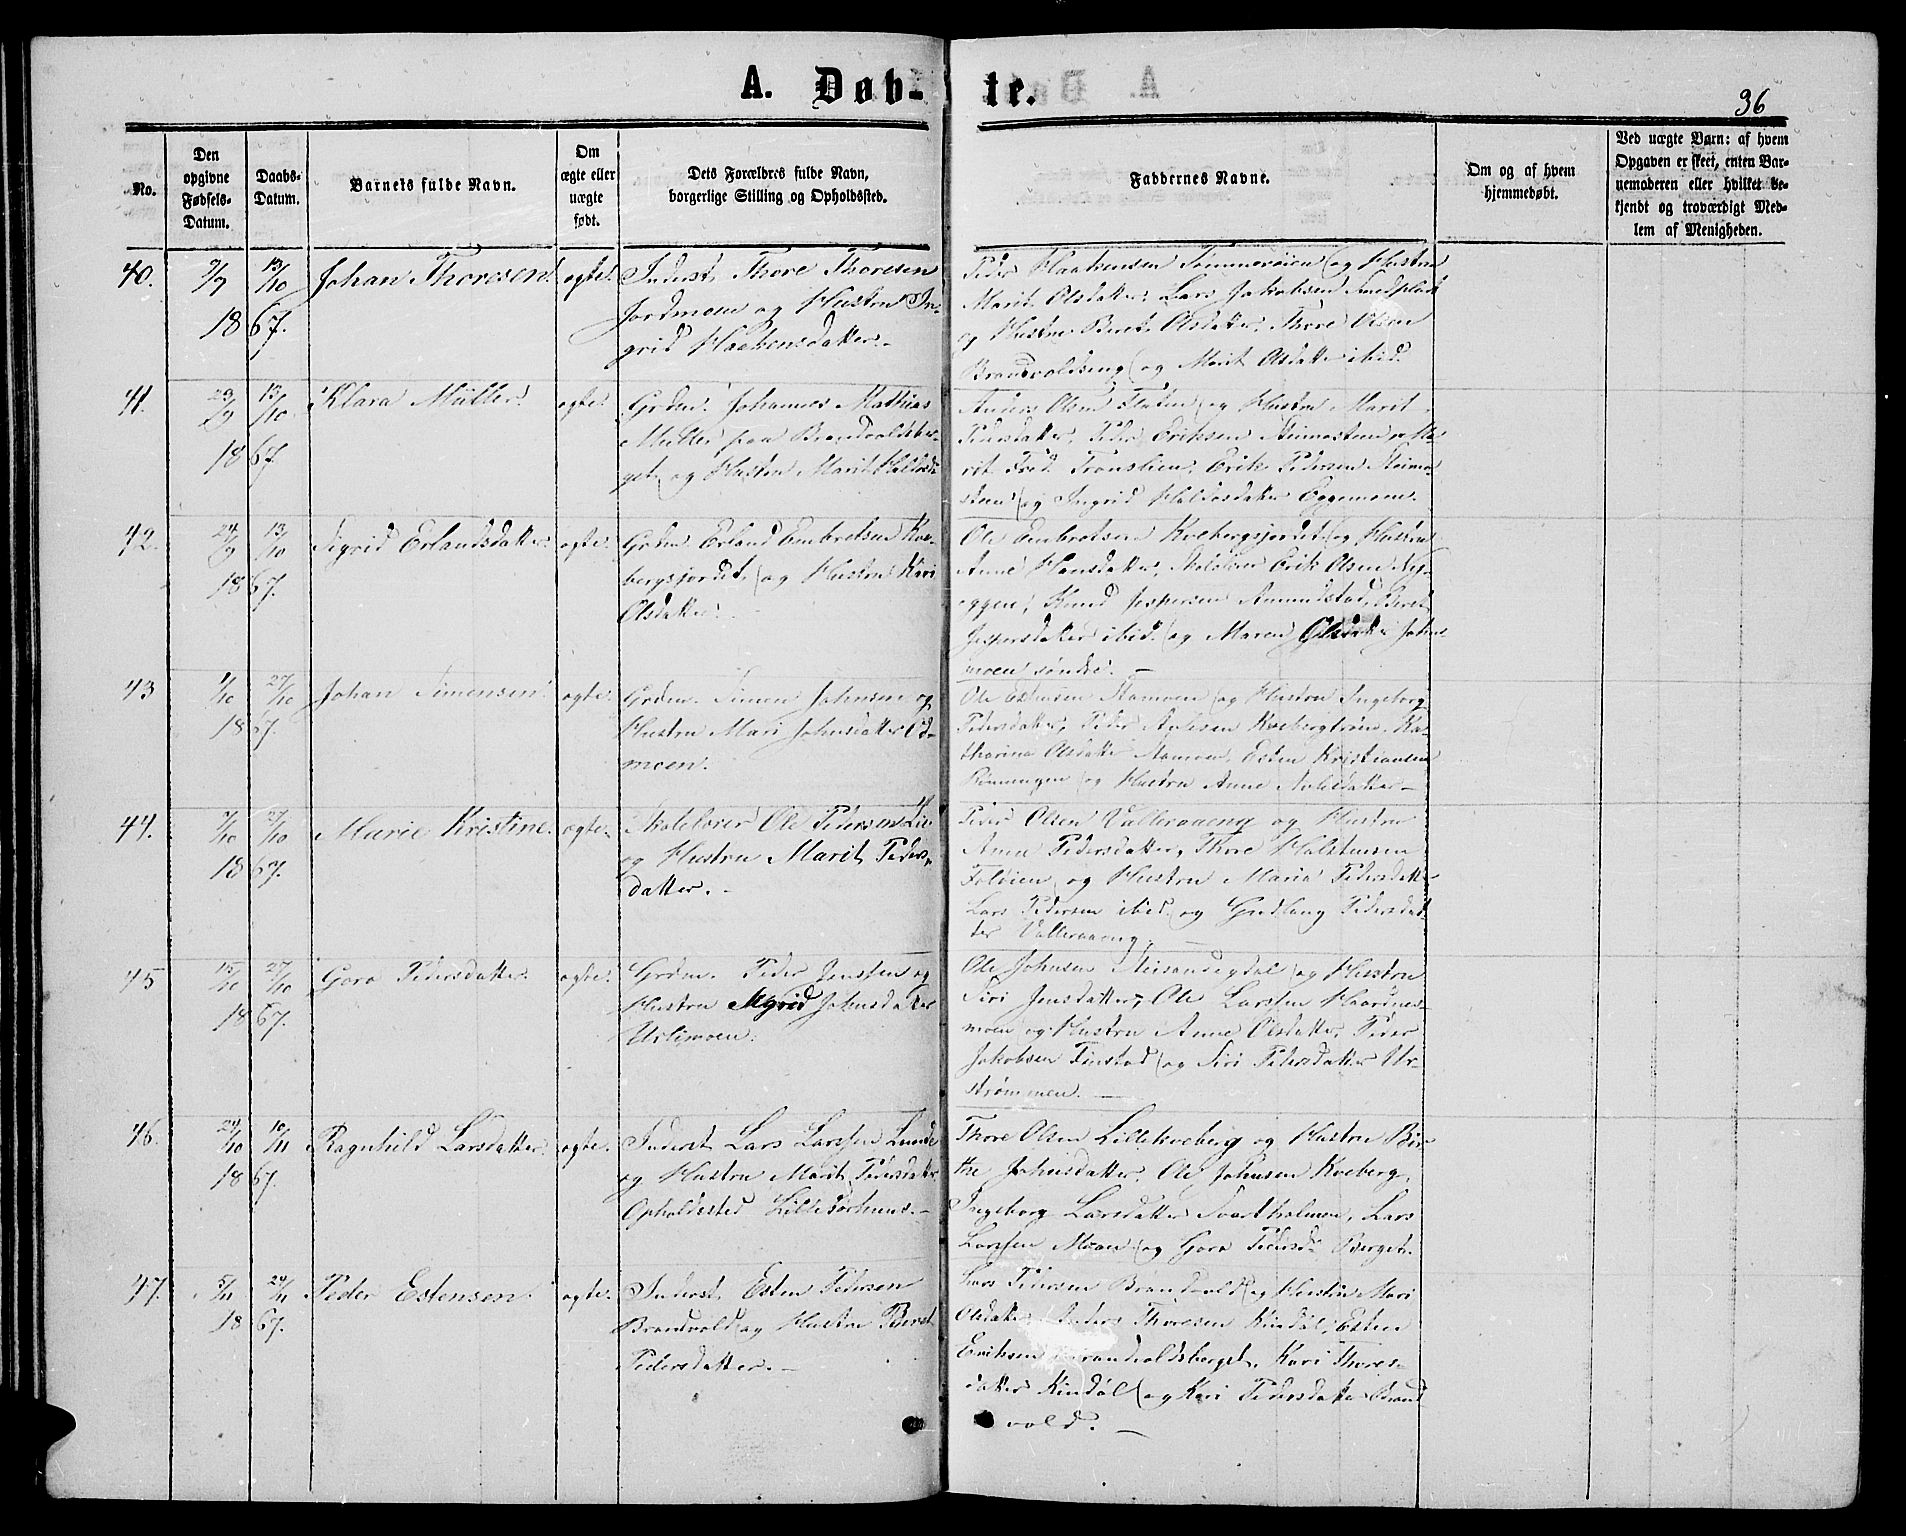 A. Døb- te.
36
No.
Den opgivne Fødsels-Datum.
Daabs-Datum.
Barnets fulde Navn.
Om ægte eller uægte født.
Dets Forældres fulde Navn, borgerlige Stilling og Opholdssted.
Faddernes Navne.
Om og af hvem hjemmedøbt.
Ved uægte Barn: af hvem
Opgaven er skeet, enten Bar-
nemoderen eller hvilket be-
kjendt og troværdigt Med-
lem af Menigheden.
40. 9/9 13/10 Johan Thoresen. ægte. Inderst Thore Thoresen
1867. Jordmoen og Hustru In-
grid Haakensdatter.
Peder Haakensen Tømmerøien og Hustru
Marit Olsdatter, Lars Jakobsen
og Hustru Beret Olsdatter, Thore Olsen
Brandvoldseng og Marit Olsdatter ibid.
41. 29/9 13/10 Klara Müller. ægte. Grdm. Johannes Mathias
1867. Müller paa Brandvoldsber-
get og Hustru Marit
Anders Olsen Flaten og Hustru Marit
Pedersdatter, Peder Eriksen
rit Trønslien, Erik Pedersen Steimo-
steen og Ingrid Eggemoen.
42. 24/9 13/10 Sigrid Erlandsdatter ægte. Grdm. Erland Embretsen Kve-
1867. bergsjordet og Hustru Kari
Olsdatter.
Ole Embretsen Kvebergsjordet og Hustru
Anne Hansdatter, Skolelærer Erik Olsen Ny-
eggen, Knud Jespersen Aamundstad, Beret
Jespersdatter ibid. og Maren Olsdatter
moen søndre.
43 1/10 27/10 Johan Simensen. ægte. Grdm. Simen Johnsen og
1867. Hustru Mari Johnsdatter Ed-
moen.
Ole Estensen Stamoen og Hustru Ingeborg
Pedersdatter, Peder Kvebergtrøen, Ka-
tharina Olsdatter Stamoen, Esten Kristiansen
Rønningen og Hustru Anne
44. 7/10 27/10 Marie Kristine. ægte. Skolelærer Ole Pedersen Lie
1867. og Hustru Marit Peders-
datter.
Peder Olsen Vollevaang og Hustru
Anne Pedersdatter, Thore Halstensen
Foløien og Hustru Maria Pedersdatter
Lars Pedersen ibid. og Gudlaug Pedersdat-
ter Vollevaang.
45 15/10 27/10 Goro Pedersdatter. ægte. Grdm. Peder Jenssen og
1867. Hustru Sigrid Johnsdatter
Urstrømoen.
Ole Johnsen og Hustru
Siri Jensdatter, Ole Larssen
moen og Hustru Anne Olsdatter, Peder
Jakobsen Finstad og Siri Pedersdatter Ur-
strømmen.
46. 24/10 10/11 Ragnhild Larsdatter. ægte. Inderst Lars Larssen Lunde
1867. og Hustru Marit Pedersdatter
Opholdssted Lillesørhuus.
Thore Olsen Lillekveberg og Hustru Bir-
the Johnsdatter, Ole Johnsen Kveberg,
Ingeborg Larsdatter Svartholmen, Lars
Larssen Moen og Goro Pedersd. Berget.
47. 5/11 24/11 Peder Estensen. ægte. Inderst Esten Pedersen
1867. Brandvold og Hustru Beret
Pedersdatter.
Lars Pedersen Brandvold og Hustru Mari
Olsdatter, Anders Thoresen Kindøl, Esten
Eriksen Brandvoldsberget, Kari Thores-
datter Kindøl og Kari Pedersdatter Brand-
vold.